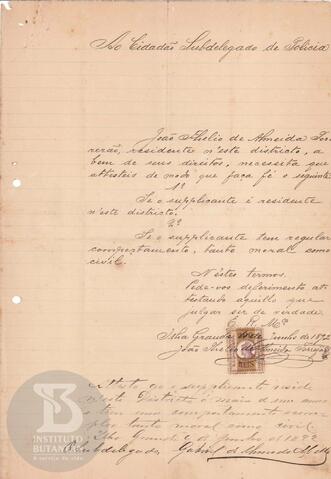 Ao Cidadão Subdelegado de Policia
João Thelio de Almeida
residente n'este districto, a
bem de seus direitos, necessita que
attesteis de modo que faça fé o seguinte
1º
Se o supplicante é residente
n'este districto.
2º
Se o supplicante tem regular
comportamento, tanto moral como
civil.
N'estes termos.
Pede-vos deferimento at-
testando aquillo que
julgar ser de verdade
E. R. Mce
Ilha Grande Junho de 1892
João Thelio de Almeida
REIS
Attesto que o supplicante reside
neste Districto é mais de um anno
e tem um comportamento exem-
plar tanto moral como civil
Ilha Grande de Junho de 1892
O Subdelegado, Gabriel
INSTITUTO
BUTANTAN
A serviço da vida